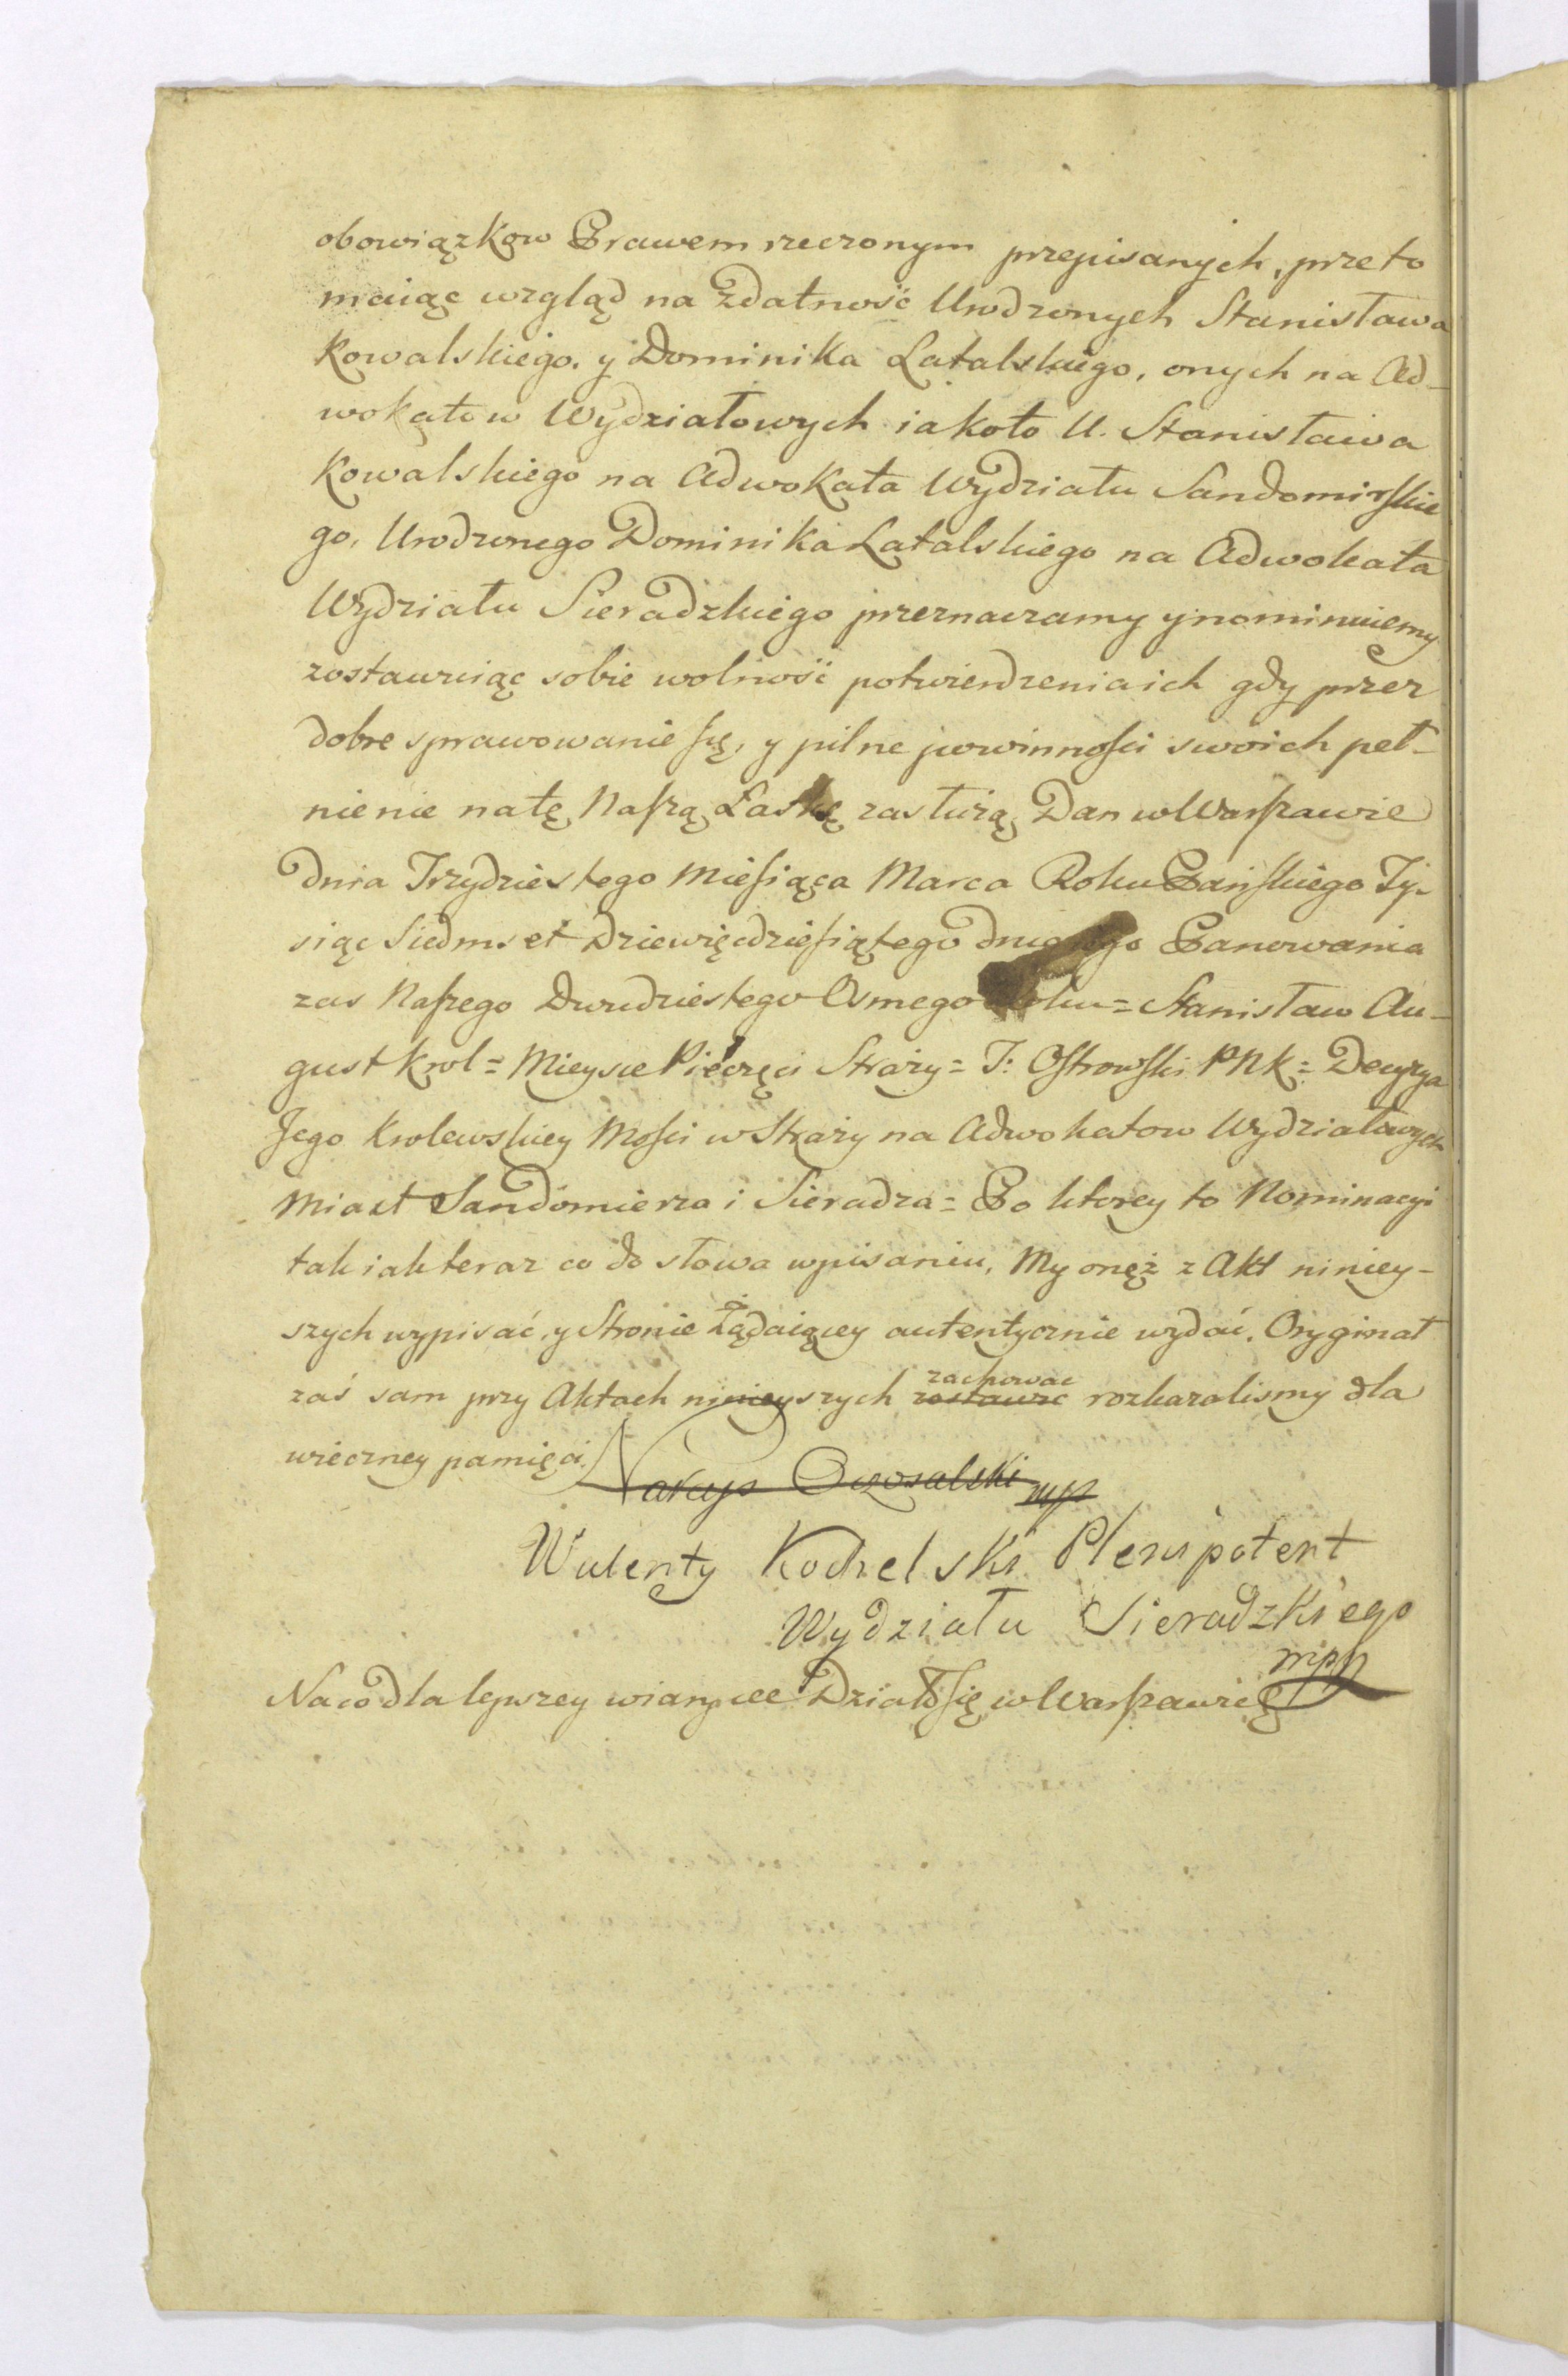 obowiązkow Prawem rzeczonym przepisanych, przeto
maiąc wzgląd na Zdatność Urodzonych Stanisława
Kowalskiego, y Dominika Latalskiego, onych na Ad-
wokatow Wydziałowych iakoto U. Stanisława
Kowalskiego na Adwokata Wydziału Sandomirskie
go, Urodzonego Dominika Latalskiego na Adwokata
Wydziału Sieradzkiego przeznaczamy y nominuiemy
zostawuiąc sobie wolność potwierdzenia ich gdy przez
dobre sprawowanie się, y pilne powinności swoich peł-
nienie na tę Naszą Łaskę zasłużą, Dan w Warszawie
dnia Trzydziestego Miesiąca Marca Roku Pańskiego Ty-
siąc Siedmset Dziewięćdziesiątego drugiego Panowania
zas Naszego Dwudziestego Osmego Roku = Stanisław Au-
gust Krol = Mieysce Pieczęci Straży = T: Ostrowski PNK = Decyzya
Jego Krolewskiey Mości w Straży na Adwokatow Wydziałowych
Miast Sandomierza i Sieradza = Po ktorey to Nominacyi
tak iak teraz co do słowa wpisaniu, My onęż z Akt niniey-
szych wypisać, y Stronie Żądaiącey autentycznie wydać, Oryginał
zachować
zaś sam przy Aktach ninieyszych zostawić rozkazalismy dla
wieczney pamięci.
Walenty Kochelski Plenipotent
Wydziału Sieradzkiego
mpp
Na co dla lepszey wiary etc Działo się w Warszawie